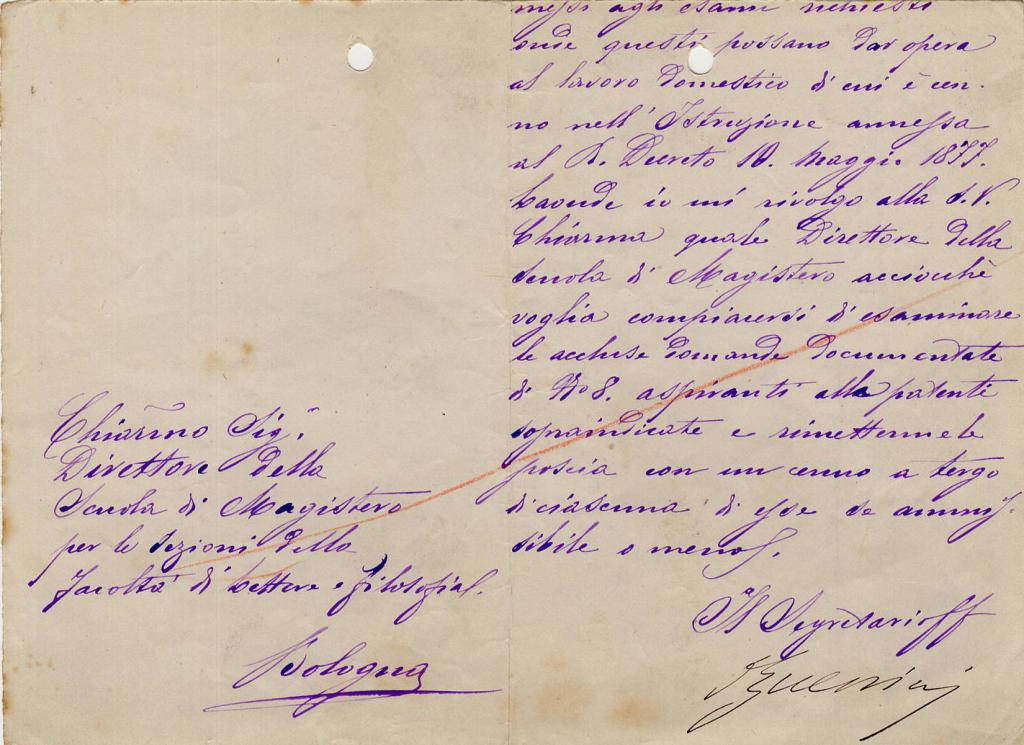 Chiarmo Sig.r
Direttore della
Scuola di Magistero
per le sezioni della
facoltà di Lettere e filosofia.
Bologna
messi agli esami richiesti
onde questi possano dar opera
al lavoro domestico di cui è cen-
no nell'Istruzione annessa
al R. Decreto 10. Maggio 1877.
Laonde io mi rivolgo alla S.V.
Chiarma quale Direttore della
Scuola di Magistero acciochè
voglia compiacersi di esaminare
le accluse domande documentate
di No 8. aspiranti alla patente
sopraindicata e rimettermele
poscia con un cenno a tergo
di ciascuna di esse se ammis-
sibile o meno.
Il Segretario ff